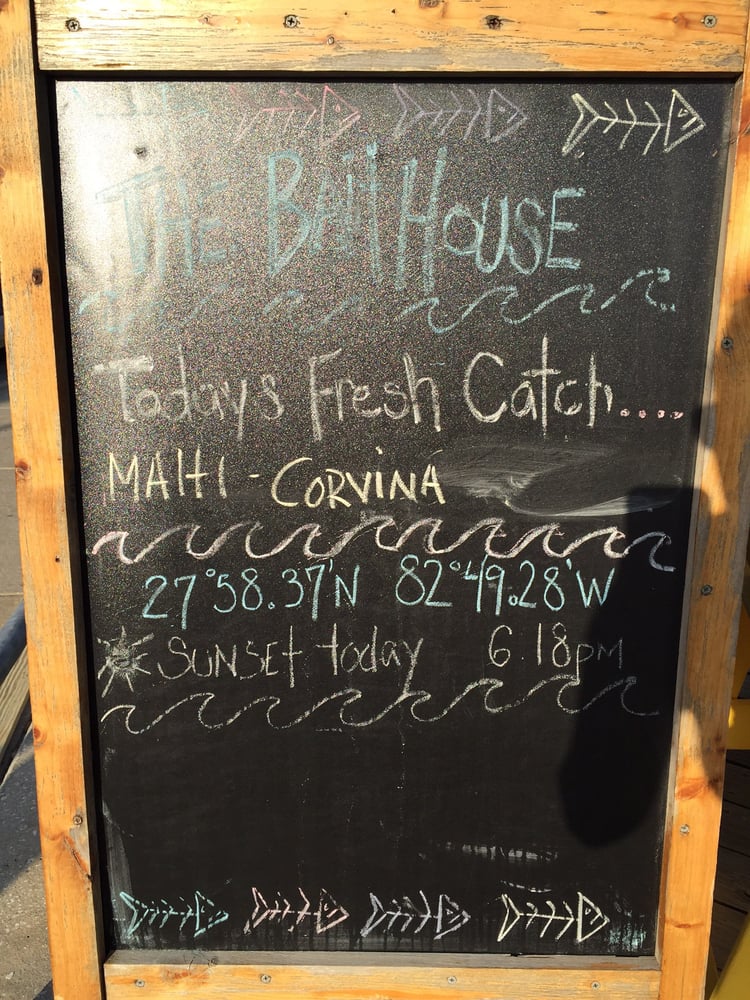 THE BAIT HOUSE
Todays Fresh Catch.....
MAHI - CORVINA
27°58.37'N 82°49.28'W
SUNSET today 6.18pm